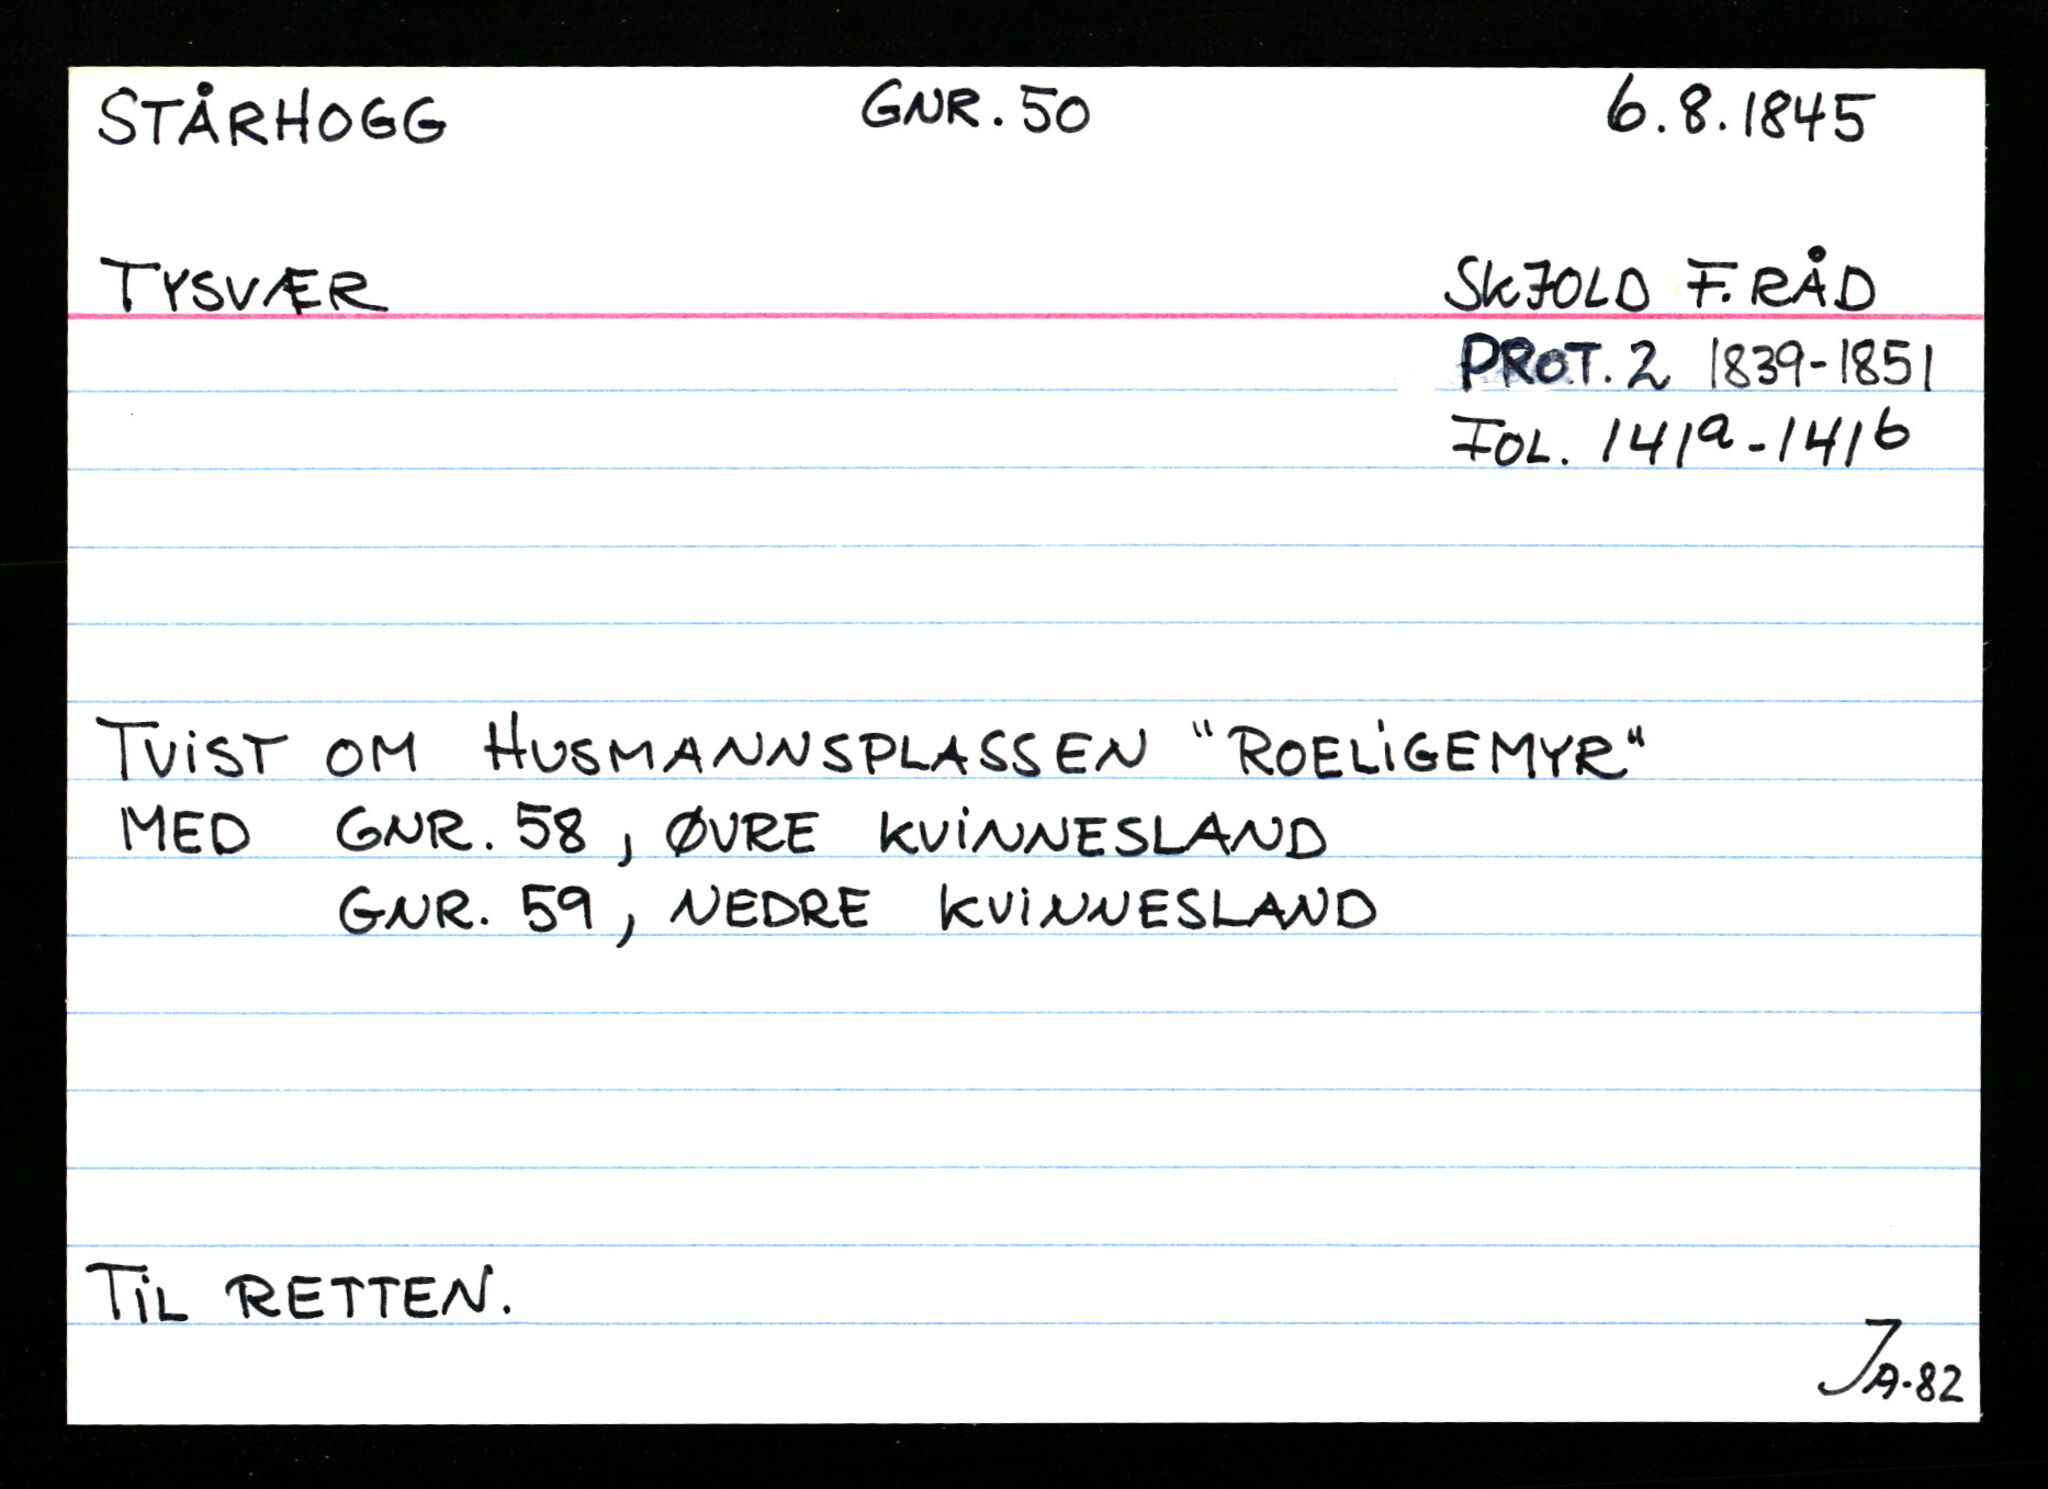 STÅRHOGG GNR. 50 6.8.1845
TYSVÆR SKJOLD F.RÅD
PROT. 2 1839-1851
FOL. 141a-141b
TVIST OM HUSMANNSPLASSEN "ROELIGEMYR"
MED GNR. 58, ØVRE KVINNESLAND
GNR. 59, NEDRE KVINNESLAND
TIL RETTEN.
JA-82